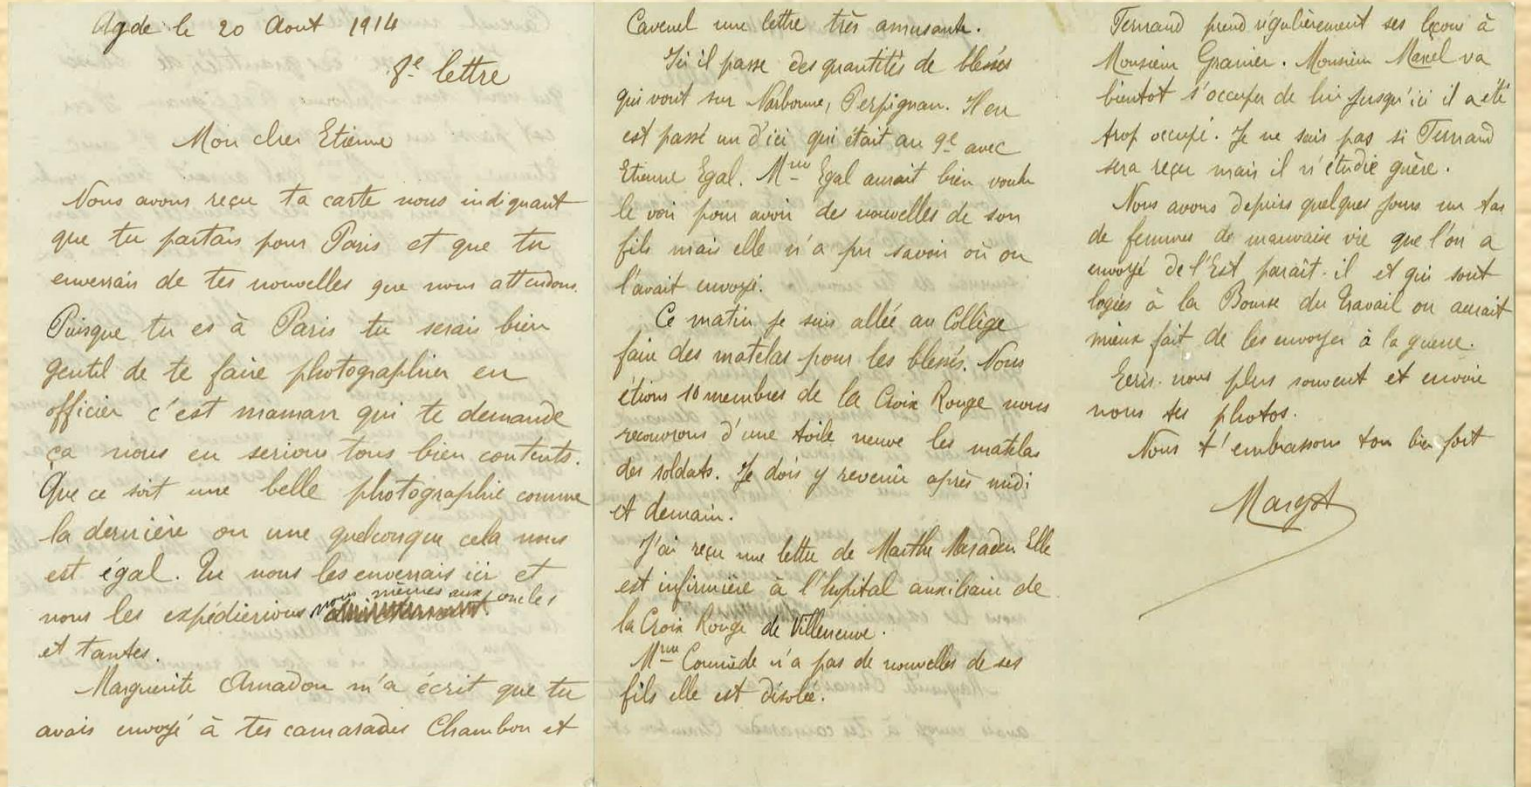 Agde le 20 Aout 1914
8e lettre
Mon cher Etienne
Nous avons reçu ta carte nous indiquant
que tu partais pour Paris et que tu
enverrais de tes nouvelles que nous attendons.
Puisque tu es à Paris tu serais bien
gentil de te faire photographier en
officier c'est maman qui te demande
ça nous en serions tous bien contents.
Que ce soit une belle photographie comme
la dernière ou une quelconque cela nous
est égal. Tu nous les enverrais ici et
nous les expédierions nous mêmes aux oncles
et tantes.
Marguerite Amadou m'a écrit que tu
avais envoyé à tes camarades Chambon et
Cavenel une lettre très amusante.
Ici il passe des quantités de blessés
qui vont sur Narbonne, Perpignan. Il en
est passé un d'ici qui était au 9e avec
Etienne Egal. Mme Egal aurait bien voulu
le voir pour avoir des nouvelles de son
fils mais elle n'a pu savoir où on
l'avait envoyé.
Ce matin je suis allée au Collège
faire des matelas pour les blessés. Nous
étions 10 membres de la Croix Rouge nous
recouvrons d'une toile neuve les matelas
des soldats. Je dois y revenir après midi
et demain.
J'ai reçu une lettre de Marthe Elle
est infirmière à l'hopital auxiliaire de
la Croix Rouge de Villeneuve.
Mme n'a pas de nouvelles de ses
fils elle est désolée.
Fernand prend régulièrement ses leçons à
Monsieur Granier. Monsieur va
bientot s'occuper de lui jusqu'ici il a été
trop occupé. Je ne sais pas si Fernand
sera reçu mais il n'étudie guère.
Nous avons depuis quelques jours un tas
de femmes de mauvaise vie que l'on a
envoyé de l'Est parait-il et qui sont
logées à la Bourse du Travail on aurait
mieux fait de les envoyer à la guerre.
Ecris-nous plus souvent et envoie
nous tes photos.
Nous t'embrassons tous bien fort
Margot